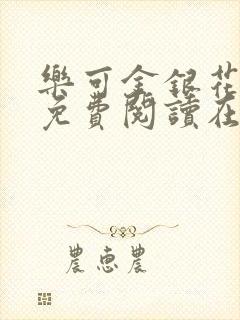 樂可金銀花
免費閱讀在
農惠農